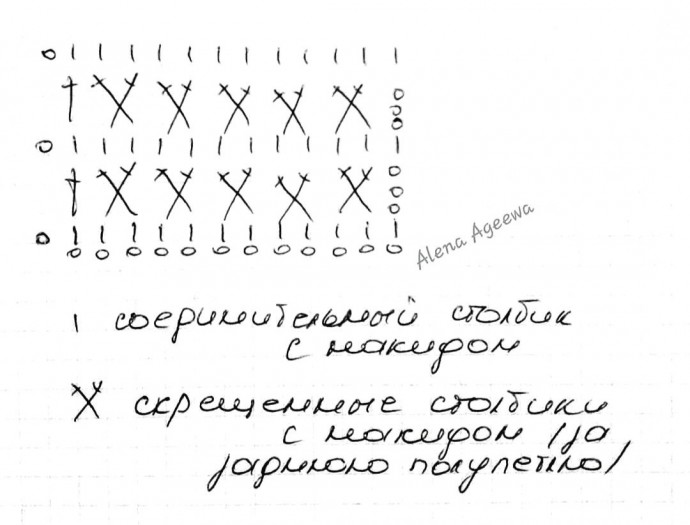 Alena Ageewa
соединительный столбик
с накидом
скрещенные столбики
с накидом (за
заднюю полупетлю)